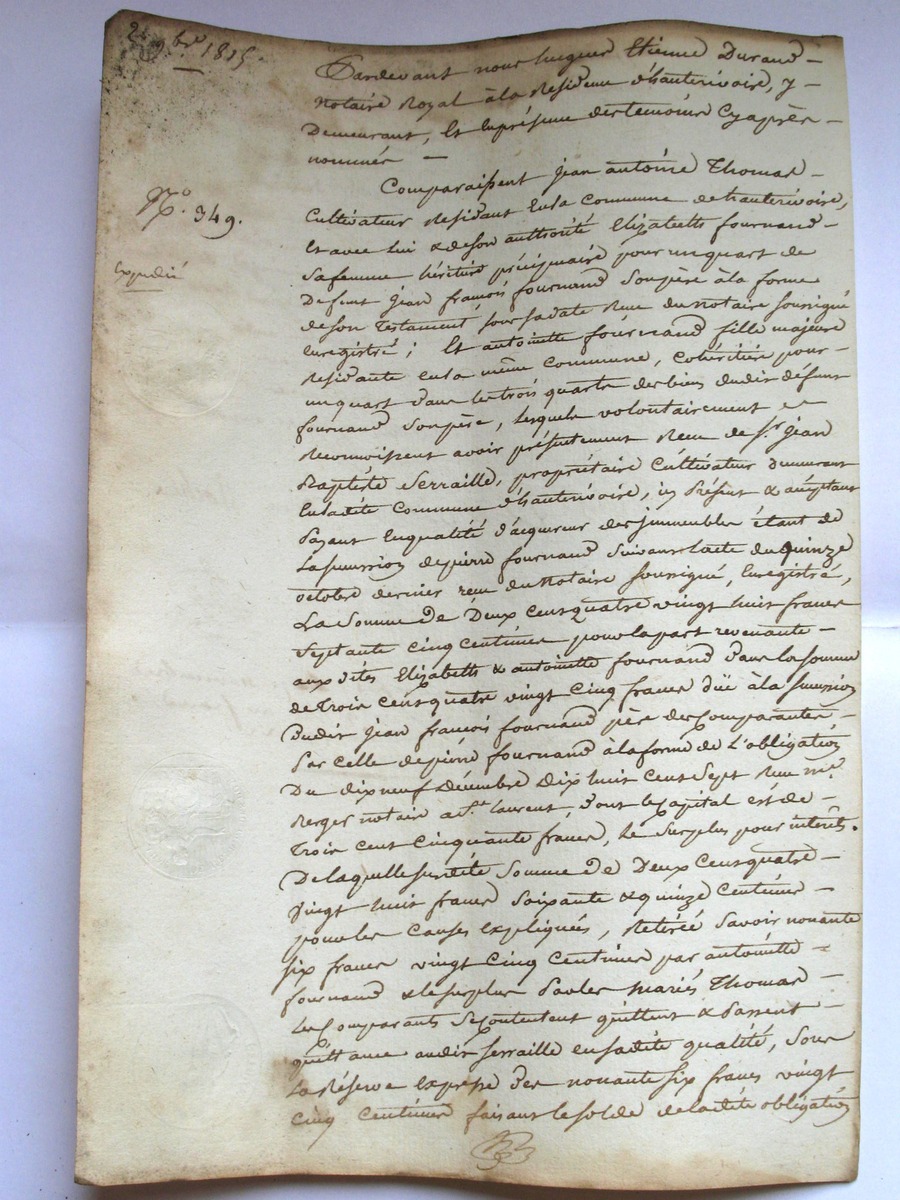 9bre 1815.
N.o 349.
Expedié
Pardevant nous Jacques Etienne Durand
Notaire Royal à la Residence d'hauterivoire, y
Demeurant, Et En présence des temoins Cyaprès
nommés
Comparaissent jean antoine Thomas
Cultivateur Residant En la Commune de hauterivoire,
Et avec Lui & de son authorité Elizabeth fournand
Sa femme héritière préciputaire pour un quart de
Defunt jean françois fournand Son père à la forme
de son Testament, sous sa date Recu du Notaire soussigné
Enregistré; Et antoinette fournand fille majeure
Residante En la même Commune, Cohéritière pour
un quart dans les trois quarts des biens dudit défunt
fournand Son père, Lesquels volontairement
Reconnoissent avoir présentement Recu de Sr. jean
Baptiste Serraille, propriétaire Cultivateur demeurant
En ladite Commune d'hauterivoire, ici Présent & acceptant
Payant En qualité d'acquereur des jmmeubles étant de
La succession de pierre fournand Suivant L'acte du quinze
octobre dernier recu du Notaire soussigné, Enregistré,
La Somme de Deux Cens quatre vingt huit francs
Septante Cinq Centimes pour la part revenante
aux dites Elizabeth & antoinette fournand dans la somme
de Trois Cens quatre vingt Cinq francs düe à la succession
Dudit jean françois fournand père des Comparantes
Par Celle de pierre fournand à la forme de L'obligation
Du dix neuf Décembre Dix huit Cent Sept Recu me.
Berger notaire a St. Laurent, Dont le Capital est de
Trois Cent Cinquante francs, Le Surplus pour intérêts.
De laquelle susdite Somme de Deux Cens quatre
Vingt huit francs Soixante & quinze Centimes
pour les Causes Expliquées, Retirée Savoir nonante
Six francs vingt Cinq Centimes par antoinette
fournand & le surplus Par les mariés Thomas
Les Comparants Se Contentent quittent & Passent
quittance audit Serraille En sadite qualité, Sous
La Réserve Expresse des nonante six francs vingt
Cinq Centimes faisant le solde de ladite obligation